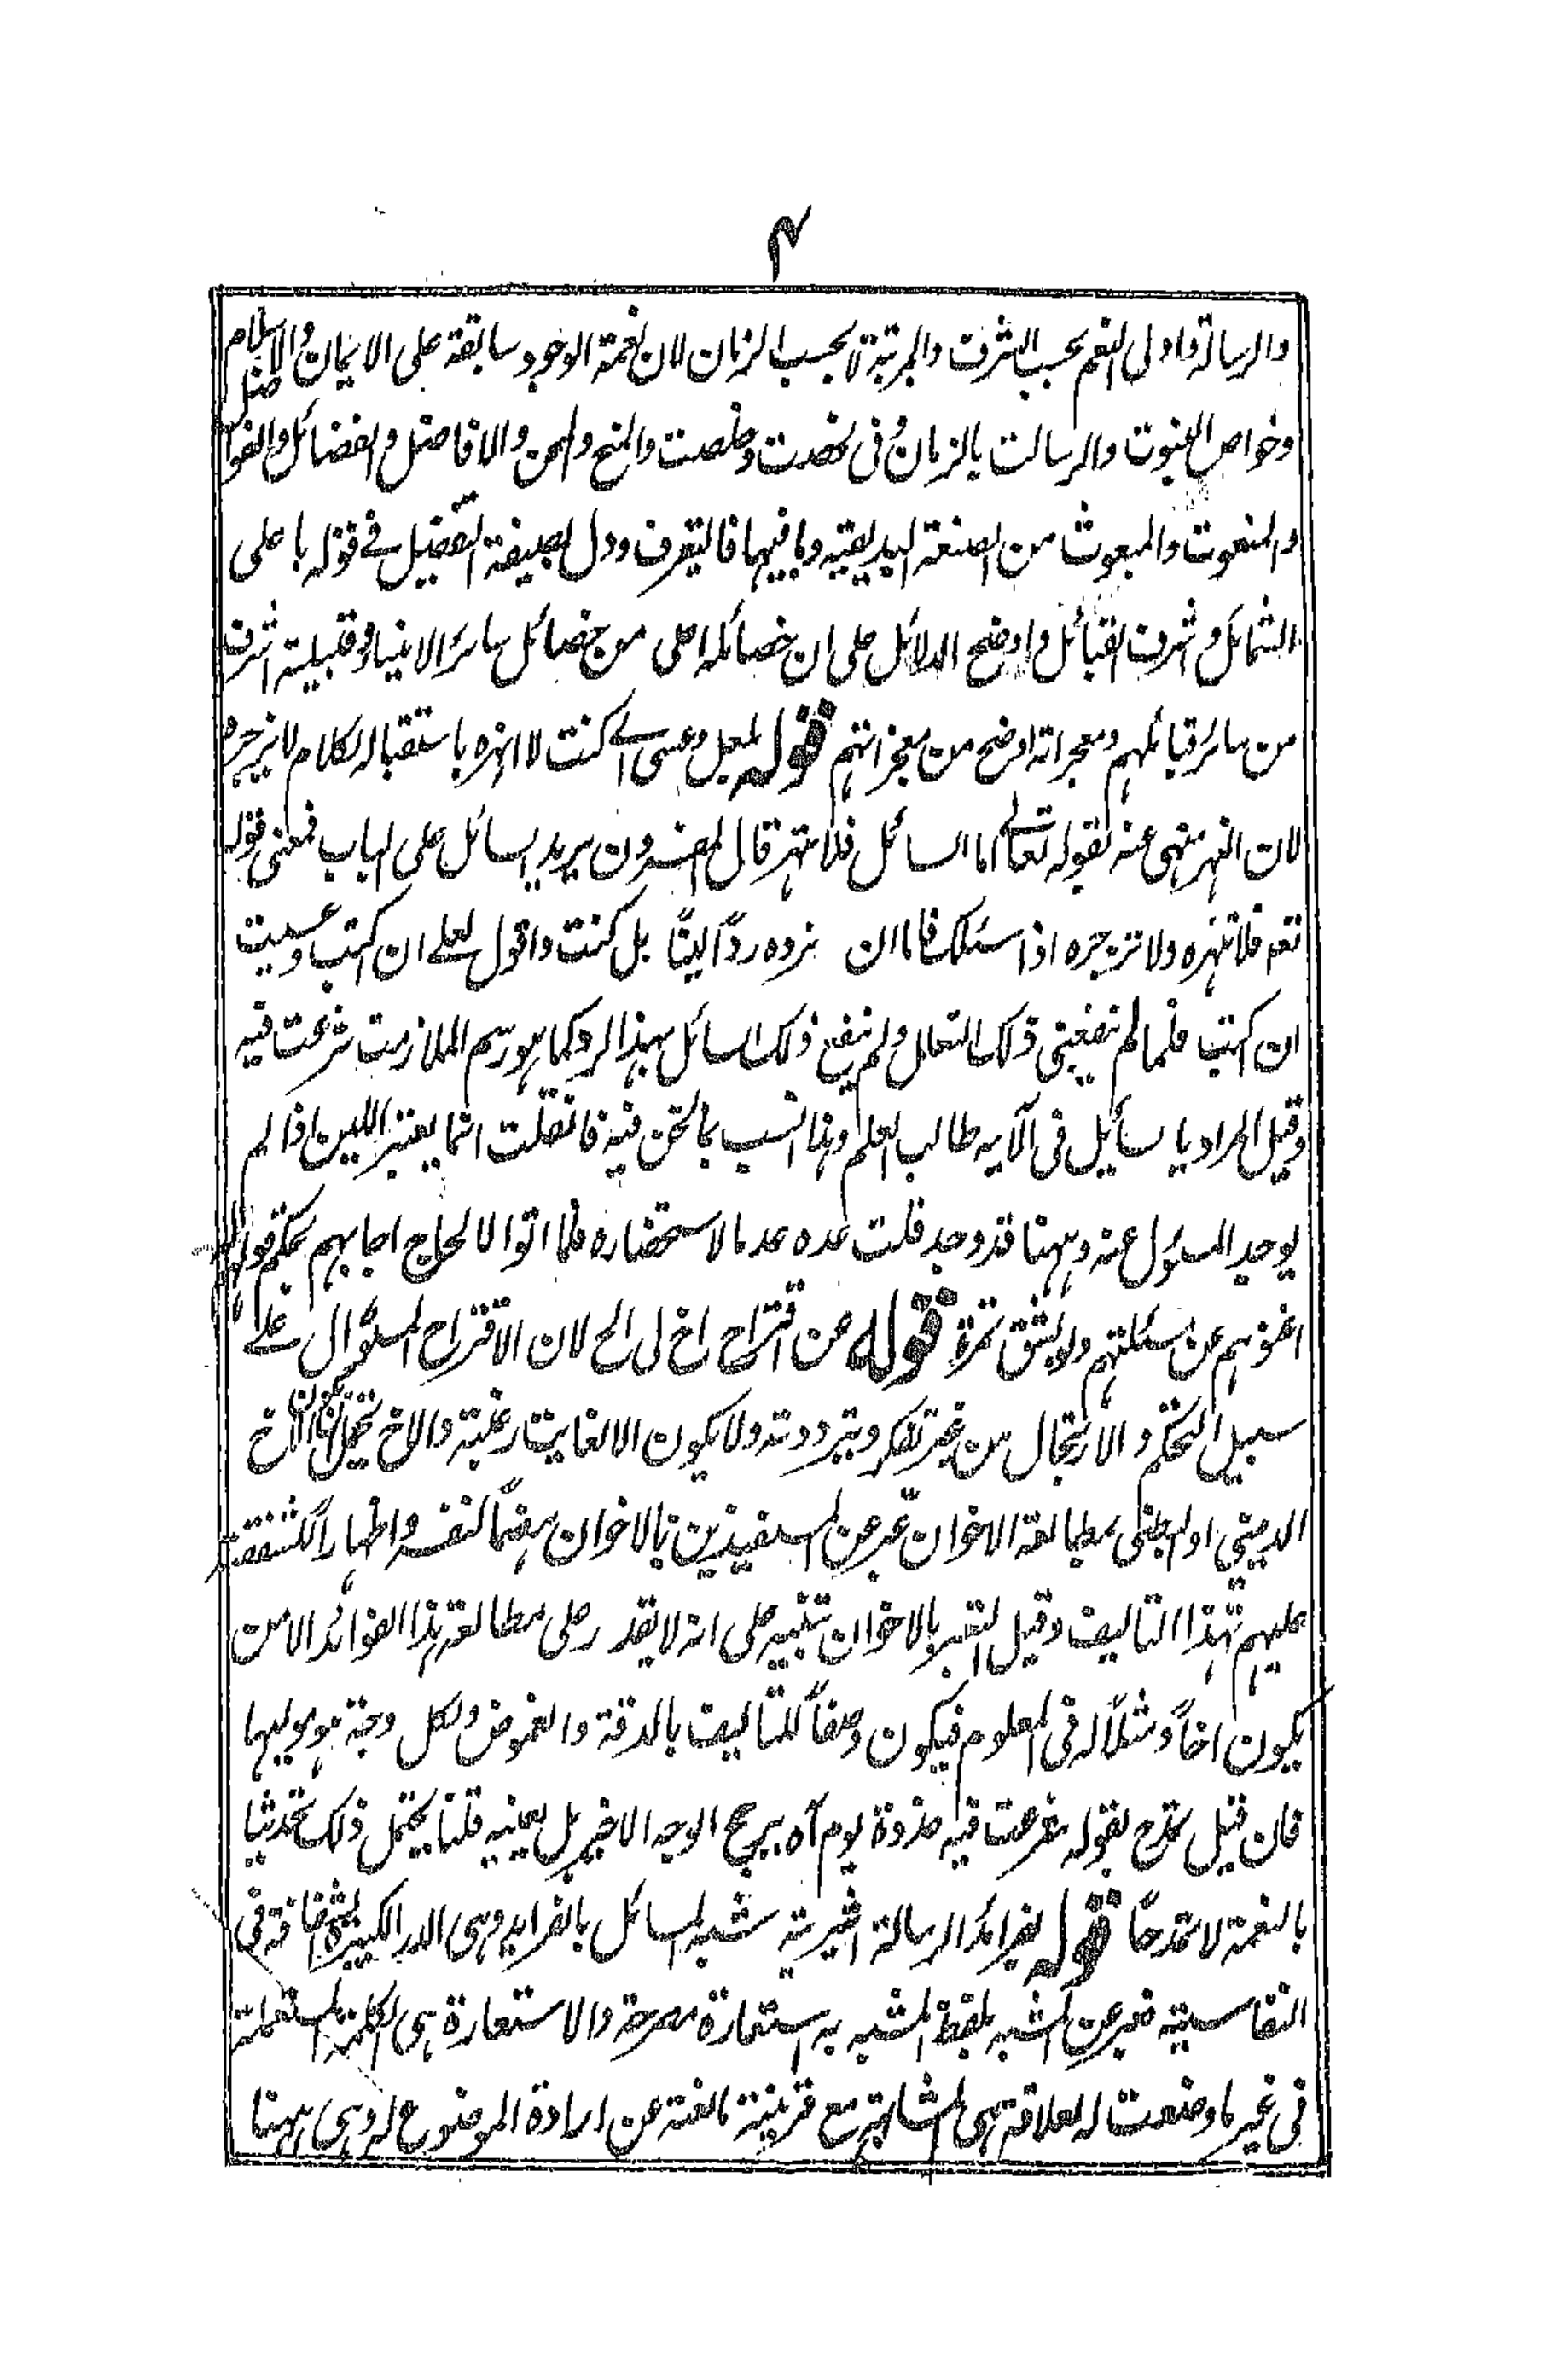 ۴
والرسالة واولى النعم بحسب الشرف والمرتبة لا بحسب الزمان لان نعمة الوجود سابقة على الايمان والاسلام
وخواص النبوت والرسالت بالزمان وفى خصت وخلصت والمنح والمحن والافاضل والفضائل والفواضل
والمنعوت والمبعوث من الصنعة البديعية وما فيها فاليتعرف ودل بصيغة التفضيل فے قوله باعلى
الشمائل واشرف القبائل واوضح الدلائل على ان خصائله اعلى من خصائل سائر الانبياء وقبيلته اشرف
من سائر قبائلهم ومعجزاته اوضح من معجزاتهم قوله بلعل وعسى اے كنت لا انهره باستقباله لكلام لا يزجره
لان النهر منهى عنه بقوله تعالے اما السائل فلا تنهر قال المفسرون يريد السائل على الباب فمعنى قوله
تعه فلا تنهره ولا تزجره اذا سئلك فاما ان تردہ رداً ليناً بل كنت واقول لعلے ان اكتب وعسيت
ان اكتب فلما لم ينفعنى ذلك التعلل ولم يغن ذلك السائل بهذا الرد كما هو رسم الملازمت شرعت فيه
وقيل المراد با سائيل فى الآيه طالب العلم وهذا انسب بما نحن فيه فانقلت انما يعتبر اللين اذا لم
يوجد المسئول عنه وههنا قد وجد قلت عده عدما لاستحضاره فلما اتوا الالحاح اجابهم بحكم قولهم
اغنوهم عن مسئلتهم ولو بشق تمرة قوله عن اقتراح اخ لى الخ لان الاقتراح السؤال علے
سبيل التحكم والارتجال من غير تفكر وتبردد تد ولا يكون الا لغايت رغبته والاخ يحتمل ان يكون الاخ
الدينى او البطنى بمطالعة الاخوان عبر عن المستفيدين بالاخوان هضماً لنفسه واظهاراً لشفقته
عليهم بهذا التاليف وقيل التعبير بالاخوان تنبيه على انه لا يقدر على مطالعة هذا الفوائد الا من
يكون اخاً ومثلاً له فى العلوم فيكون وصفاً للتاليف بالدقة والغموض ولكل وجهة هو موليها
فان قيل تمدح بقوله فرغت فيه حذوة يوم آه يرجح الوجه الاخير بل يعينه قلنا يحتمل ذلك تحدثيا
بالنعمة لا تمدحاً قوله بفرائد الرسالة اثيرية شبه المسائل بالفرايد وهى الدر الكبيرة لشرافة فى
النفاسيته فعبر عن المشبه بلفظ المشبه به استعارة مصرحة والاستعارة هى الكلمة المستعملة
فى غير ما وضعت له لعلاقة هى المشابهة مع قرينة مانعة عن ارادة الموضوع له وهى ههنا